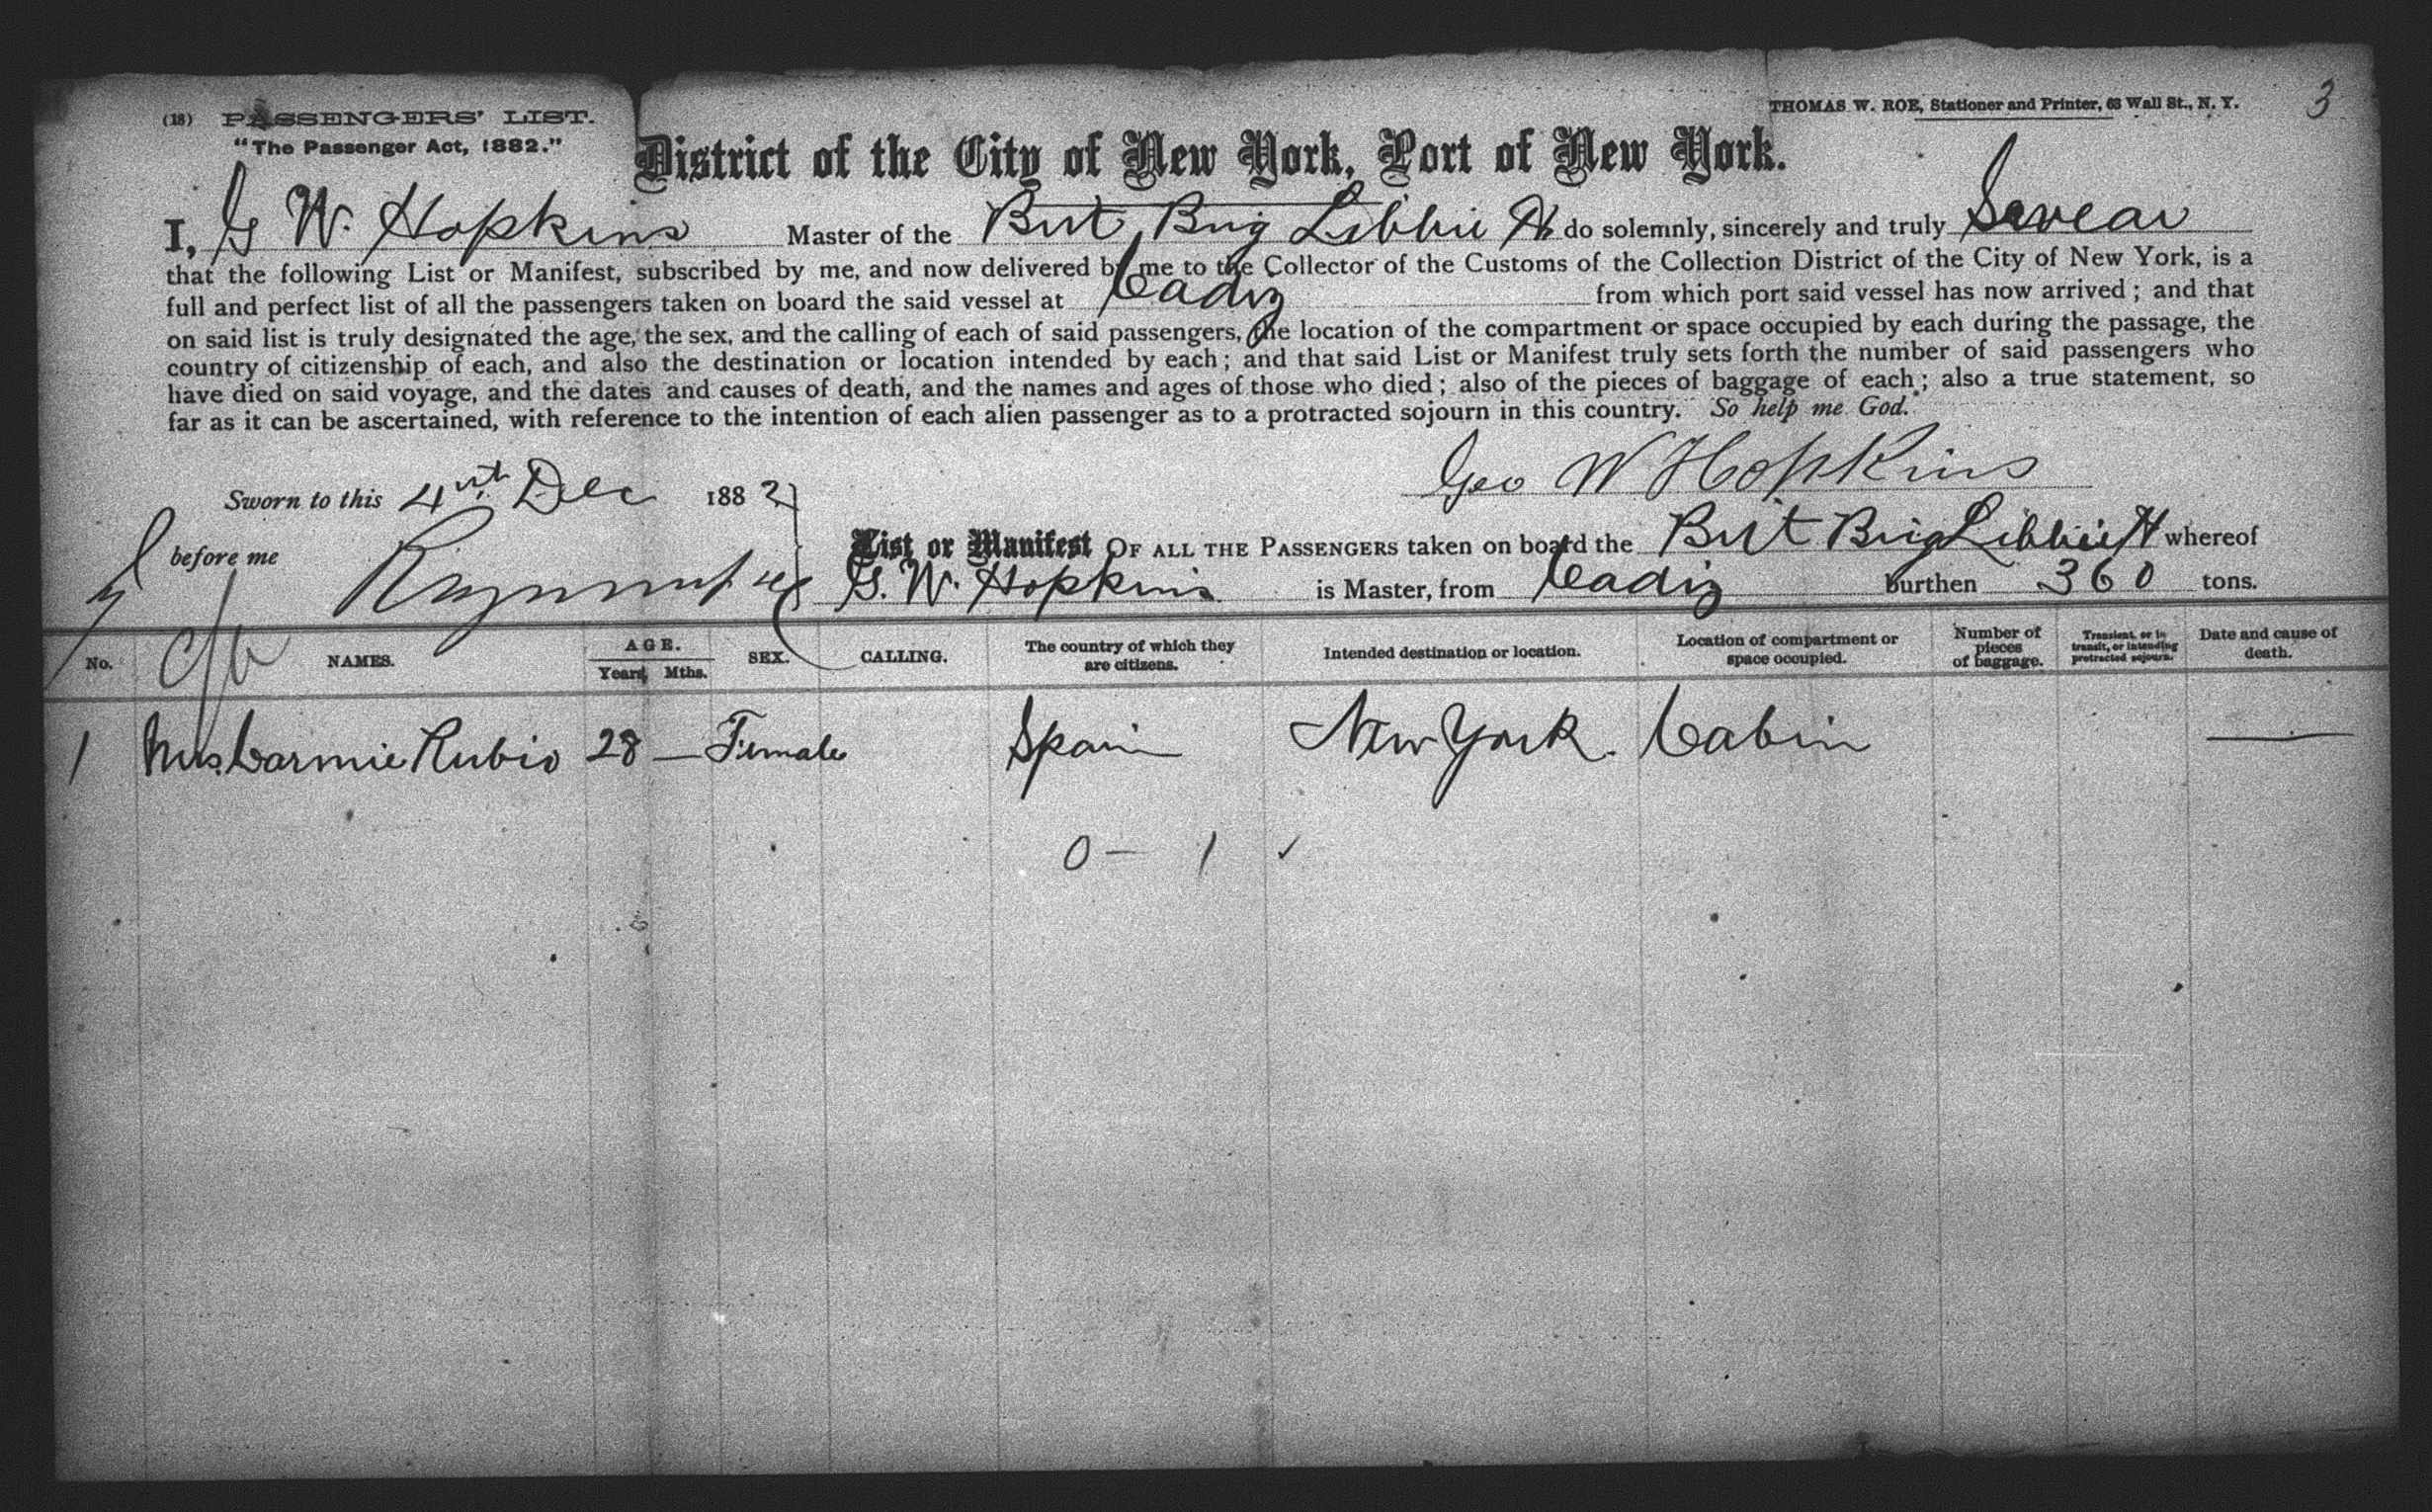 (18) PASSENGERS' LIST.
THOMAS W. ROE, Stationer and Printer, 63 Wall St., N. Y.
3
"The Passenger Act, 1882."
District of the City of New York, Port of New York.
I, G W. Hopkins Master of the Brit Brig Libbie H do solemnly, sincerely and truly Swear
that the following List or Manifest, subscribed by me, and now delivered by me to the Collector of the Customs of the Collection District of the City of New York, is a
full and perfect list of all the passengers taken on board the said vessel at Cadiz from which port said vessel has now arrived; and that
on said list is truly designated the age, the sex, and the calling of each of said passengers, the location of the compartment or space occupied by each during the passage, the
country of citizenship of each, and also the destination or location intended by each; and that said List or Manifest truly sets forth the number of said passengers who
have died on said voyage, and the dates and causes of death, and the names and ages of those who died; also of the pieces of baggage of each; also a true statement, so
far as it can be ascertained, with reference to the intention of each alien passenger as to a protracted sojourn in this country. So help me God.
Geo W Hopkins
Sworn to this 4 Dec 1883
before me
List or Manifest OF ALL THE PASSENGERS taken on board the Brit Brig Libbie H whereof
G. W. Hopkins is Master, from Cadiz burthen 360 tons.
No. NAMES. AGE. Years Mths. SEX. CALLING. The country of which they are citizens. Intended destination or location. Location of compartment or space occupied. Number of pieces of baggage. Transient, or in transit, or intending protracted sojourn. Date and cause of death.
1 Mrs. Carmie Rubio 28 — Female Spain New York. Cabin —
0 — 1 ✓